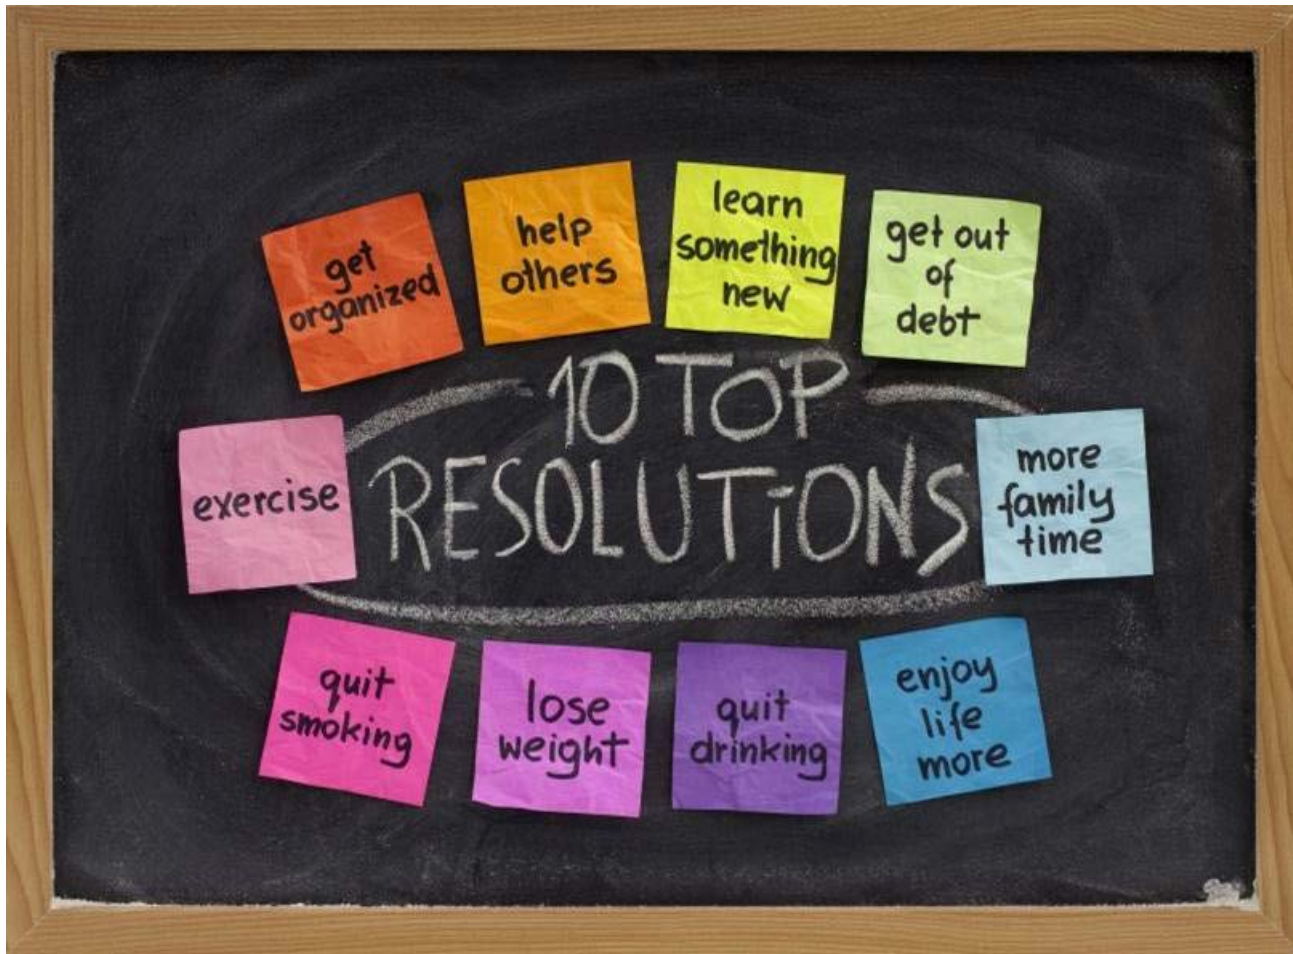 get
organized
help
others
learn
something
new
get out
of
debt
10 TOP
RESOLUTiONS
exercise
more
family
time
quit
smoking
lose
weight
quit
drinking
enjoy
life
more